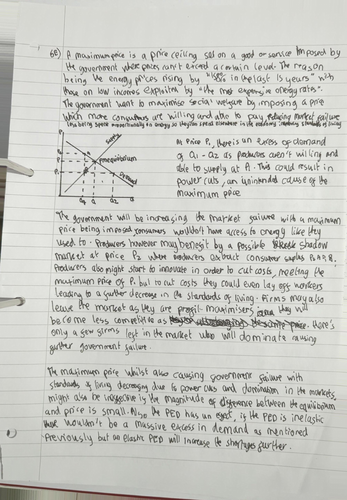 A maximum price is a price ceiling set on a good or service imposed by
the government where prices can't exceed a certain level. The reason
being the energy prices rising by in the last 15 years" with
those on low incomes exploited by "the most expensive energy rates".
The government want to maximise social welfare by imposing a price
which more consumers are willing and able to pay reducing market failure
P
supply
P2
Pe
P1
equilibrium
demand
Q1 Q Q2 Q
At Price P1 there is an excess of demand
of Q1 - Q2 as producers aren't willing and
able to supply at A. This could result in
power cuts, an unintended cause of the
maximum price
The government will be increasing the market failure with a maximum
price being imposed, consumers wouldn't have access to energy like they
used to. Producers however may benefit by a possible shadow
market at price P2 where producers extract consumer surplus
Producers also might start to innovate in order to cut costs, meeting the
maximum price of P1 but to cut costs they could even lay off workers
leading to a further decrease in the standards of living. Firms may also
leave the market as they are profit maximisers they will
become less competitive as There's
only a few firms left in the market who will dominate causing
further government failure.
The maximum price whilst also causing government failure with
standards of living decreasing due to power cuts and domination in the markets,
might also be ineffective if the magnitude of difference between the equilibrium
and price is small. Also the PED has an effect, if the PED is inelastic
there wouldn't be a massive excess in demand as mentioned
previously but an elastic PED will increase the shortages further.